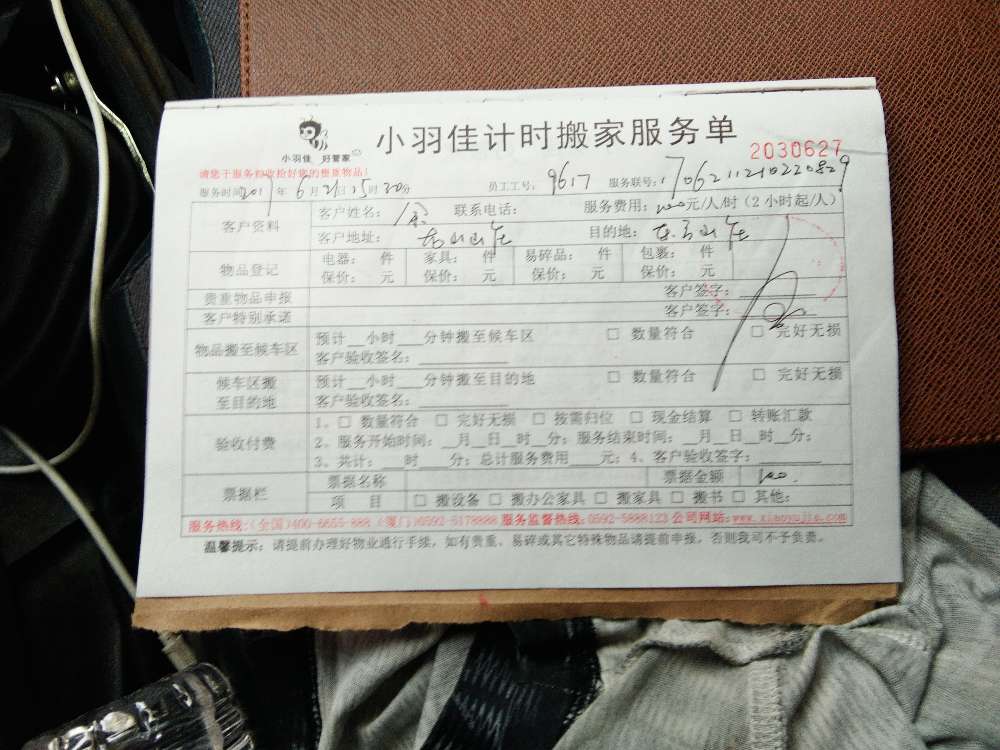 小羽佳计时搬家服务单
小羽佳 好管家
2030627
请您于服务前收拾好您的贵重物品!
服务时间:2017年6月21日15时30分 员工工号:9617 服务联号:1706211210220829
客户资料 客户姓名: 联系电话: 服务费用: 元/人/时(2小时起/人)
客户地址: 目的地:
物品登记 电器: 件 家具: 件 易碎品: 件 包裹: 件
保价: 元 保价: 元 保价: 元 保价: 元
贵重物品申报 客户签字:
客户特别承诺 客户签字:
物品搬至候车区 预计__小时___分钟搬至候车区 □ 数量符合 □ 完好无损
客户验收签名:
候车区搬至目的地 预计__小时___分钟搬至目的地 □ 数量符合 □ 完好无损
客户验收签名:
验收付费 1、□ 数量符合 □ 完好无损 □ 按需归位 □ 现金结算 □ 转账汇款
2、服务开始时间:__月__日__时__分;服务结束时间:__月__日__时__分;
3、共计:___时___分;总计服务费用___元;4、客户验收签字:
票据栏 票据名称 票据金额 100
项 目 □ 搬设备 □ 搬办公家具 □ 搬家具 □ 搬书 □ 其他:
服务热线:(全国)400-6655-888 (厦门)0592-5178888 服务监督热线:0592-5888123 公司网站:www.xiaoyujie.com
温馨提示:请提前办理好物业通行手续,如有贵重、易碎或其它特殊物品请提前申报,否则我司不予负责。